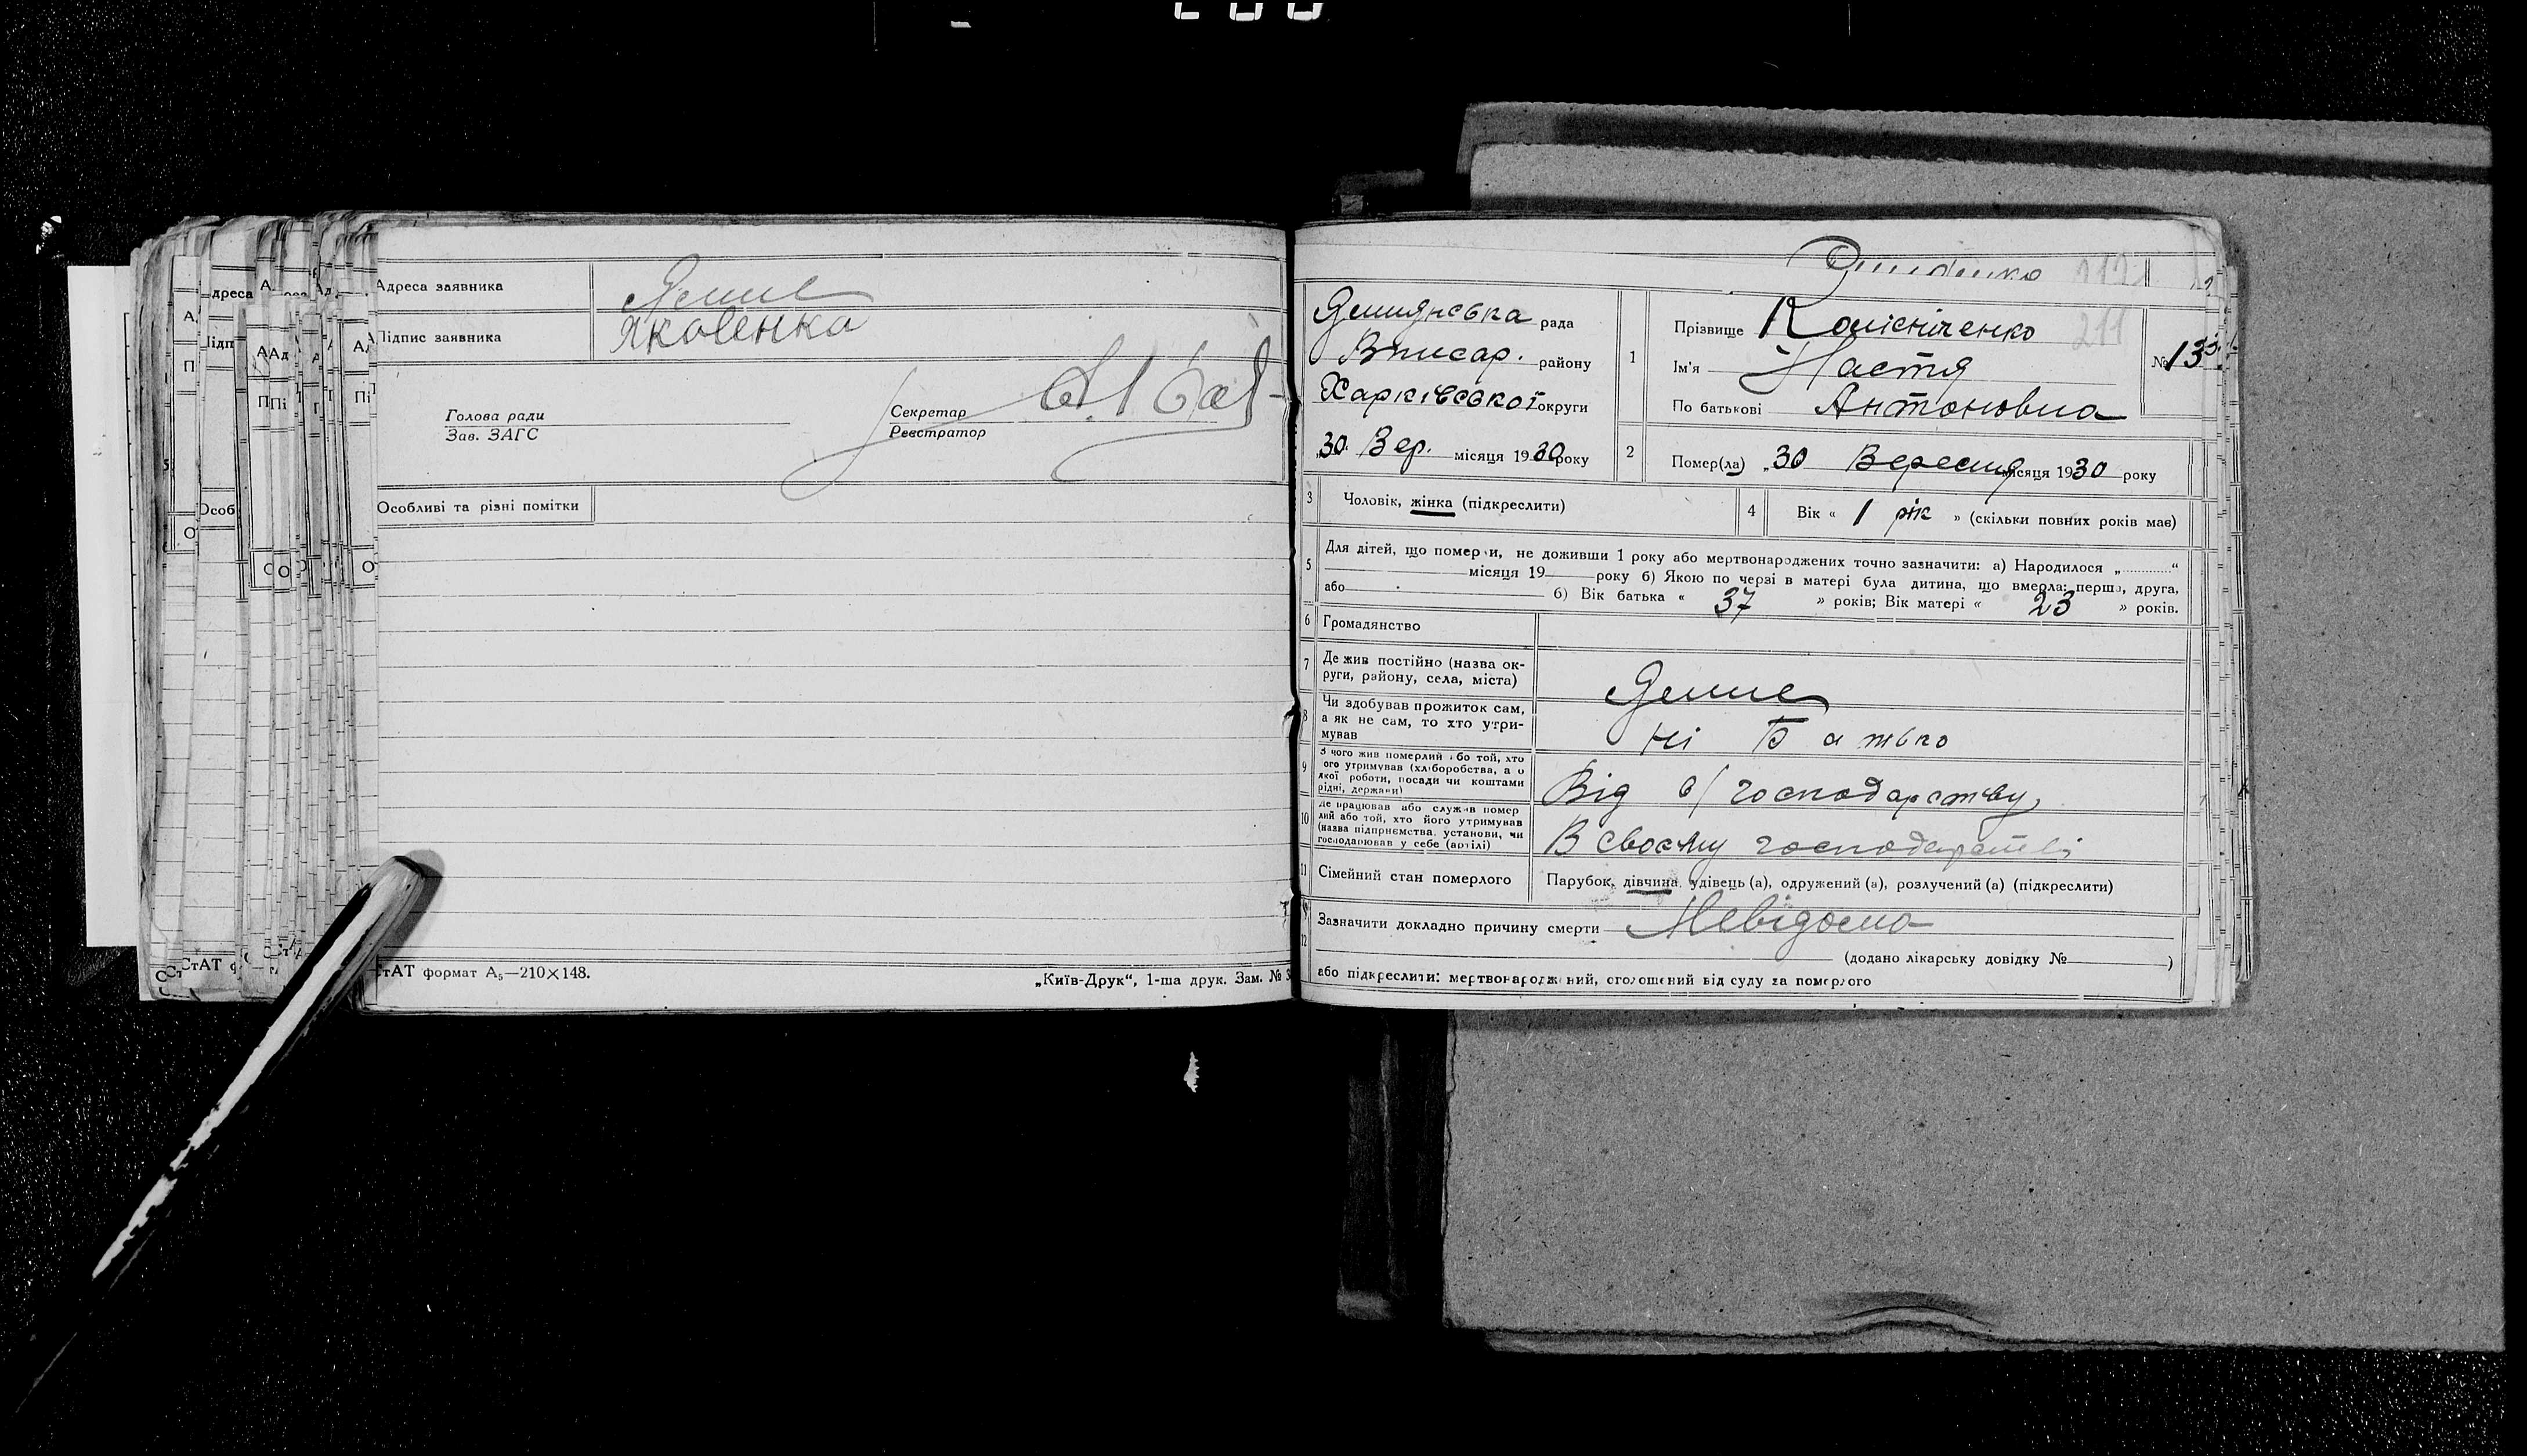 Адреса заявника
Підпис заявника Яковенко
Голова ради
Зав. ЗАГС
Секретар
Реєстратор
Особливі та різні помітки
СтАТ формат А₅—210×148.
„Київ-Друк“, 1-ша друк. Зам. №
212
рада
Писар. району
Харківської округи
„30 Вер. місяця 1930 року
1 Прізвище Колісніченко 211
Ім'я Настя
По батькові Антоновна
№ 133
2 Помер(ла) „30 Вересня місяця 1930 року
3 Чоловік, жінка (підкреслити)
4 Вік « 1 рік » (скільки повних років має)
5 Для дітей, що померли, не доживши 1 року або мертвонароджених точно зазначити: а) Народилося „............“
місяця 19 року б) Якою по черзі в матері була дитина, що вмерла: перша, друга,
або б) Вік батька « 37 » років; Вік матері « 23 » років.
6 Громадянство
7 Де жив постійно (назва округи, району, села, міста)
8 Чи здобував прожиток сам,
а як не сам, то хто утри-
мував
ні Батько
9 З чого жив померлий або той, хто
його утримував (хліборобства, а о
якої роботи, посади чи коштами
рідні, держави)
Від с/господарству
10 Де працював або служив помер
лий або той, хто його утримував
(назва підприємства, установи, чи
господарював у себе (артілі)
В своєму господарстві
11 Сімейний стан померлого Парубок, дівчина, удівець (а), одружений (а), розлучений (а) (підкреслити)
12 Зазначити докладно причину смерти Невідомо
(додано лікарську довідку № )
або підкреслити: мертвонароджений, оголошений від суду за померлого